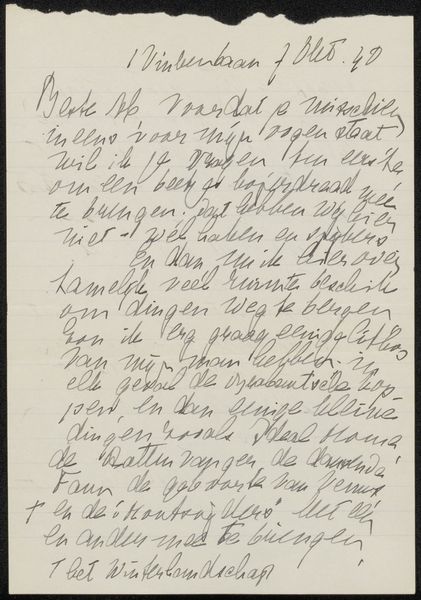 Vinkenbaan 7 Okt. 40
Beste Ab voordat je misschien
ineens voor mijn oogen staat
wil ik je vragen ten eerste
om een beetje koperdraad mee
te brengen. Dat hebben wij hier
niet - wel haken en spijkers
En dan nu ik hier over
tamelijk veel ruimte beschik
om dingen weg te bergen
zou ik erg graag eenige lithos
van mijn man hebben. in
elk geval de Brabantsche kop
pen en dan eenige kleine
dingen zooals
de Rattenvanger, de dansende
Faun de geboorte van Venus
+ en de "Houtsnijders" het een
en ander mee te brengen
+ het Winterlandschap